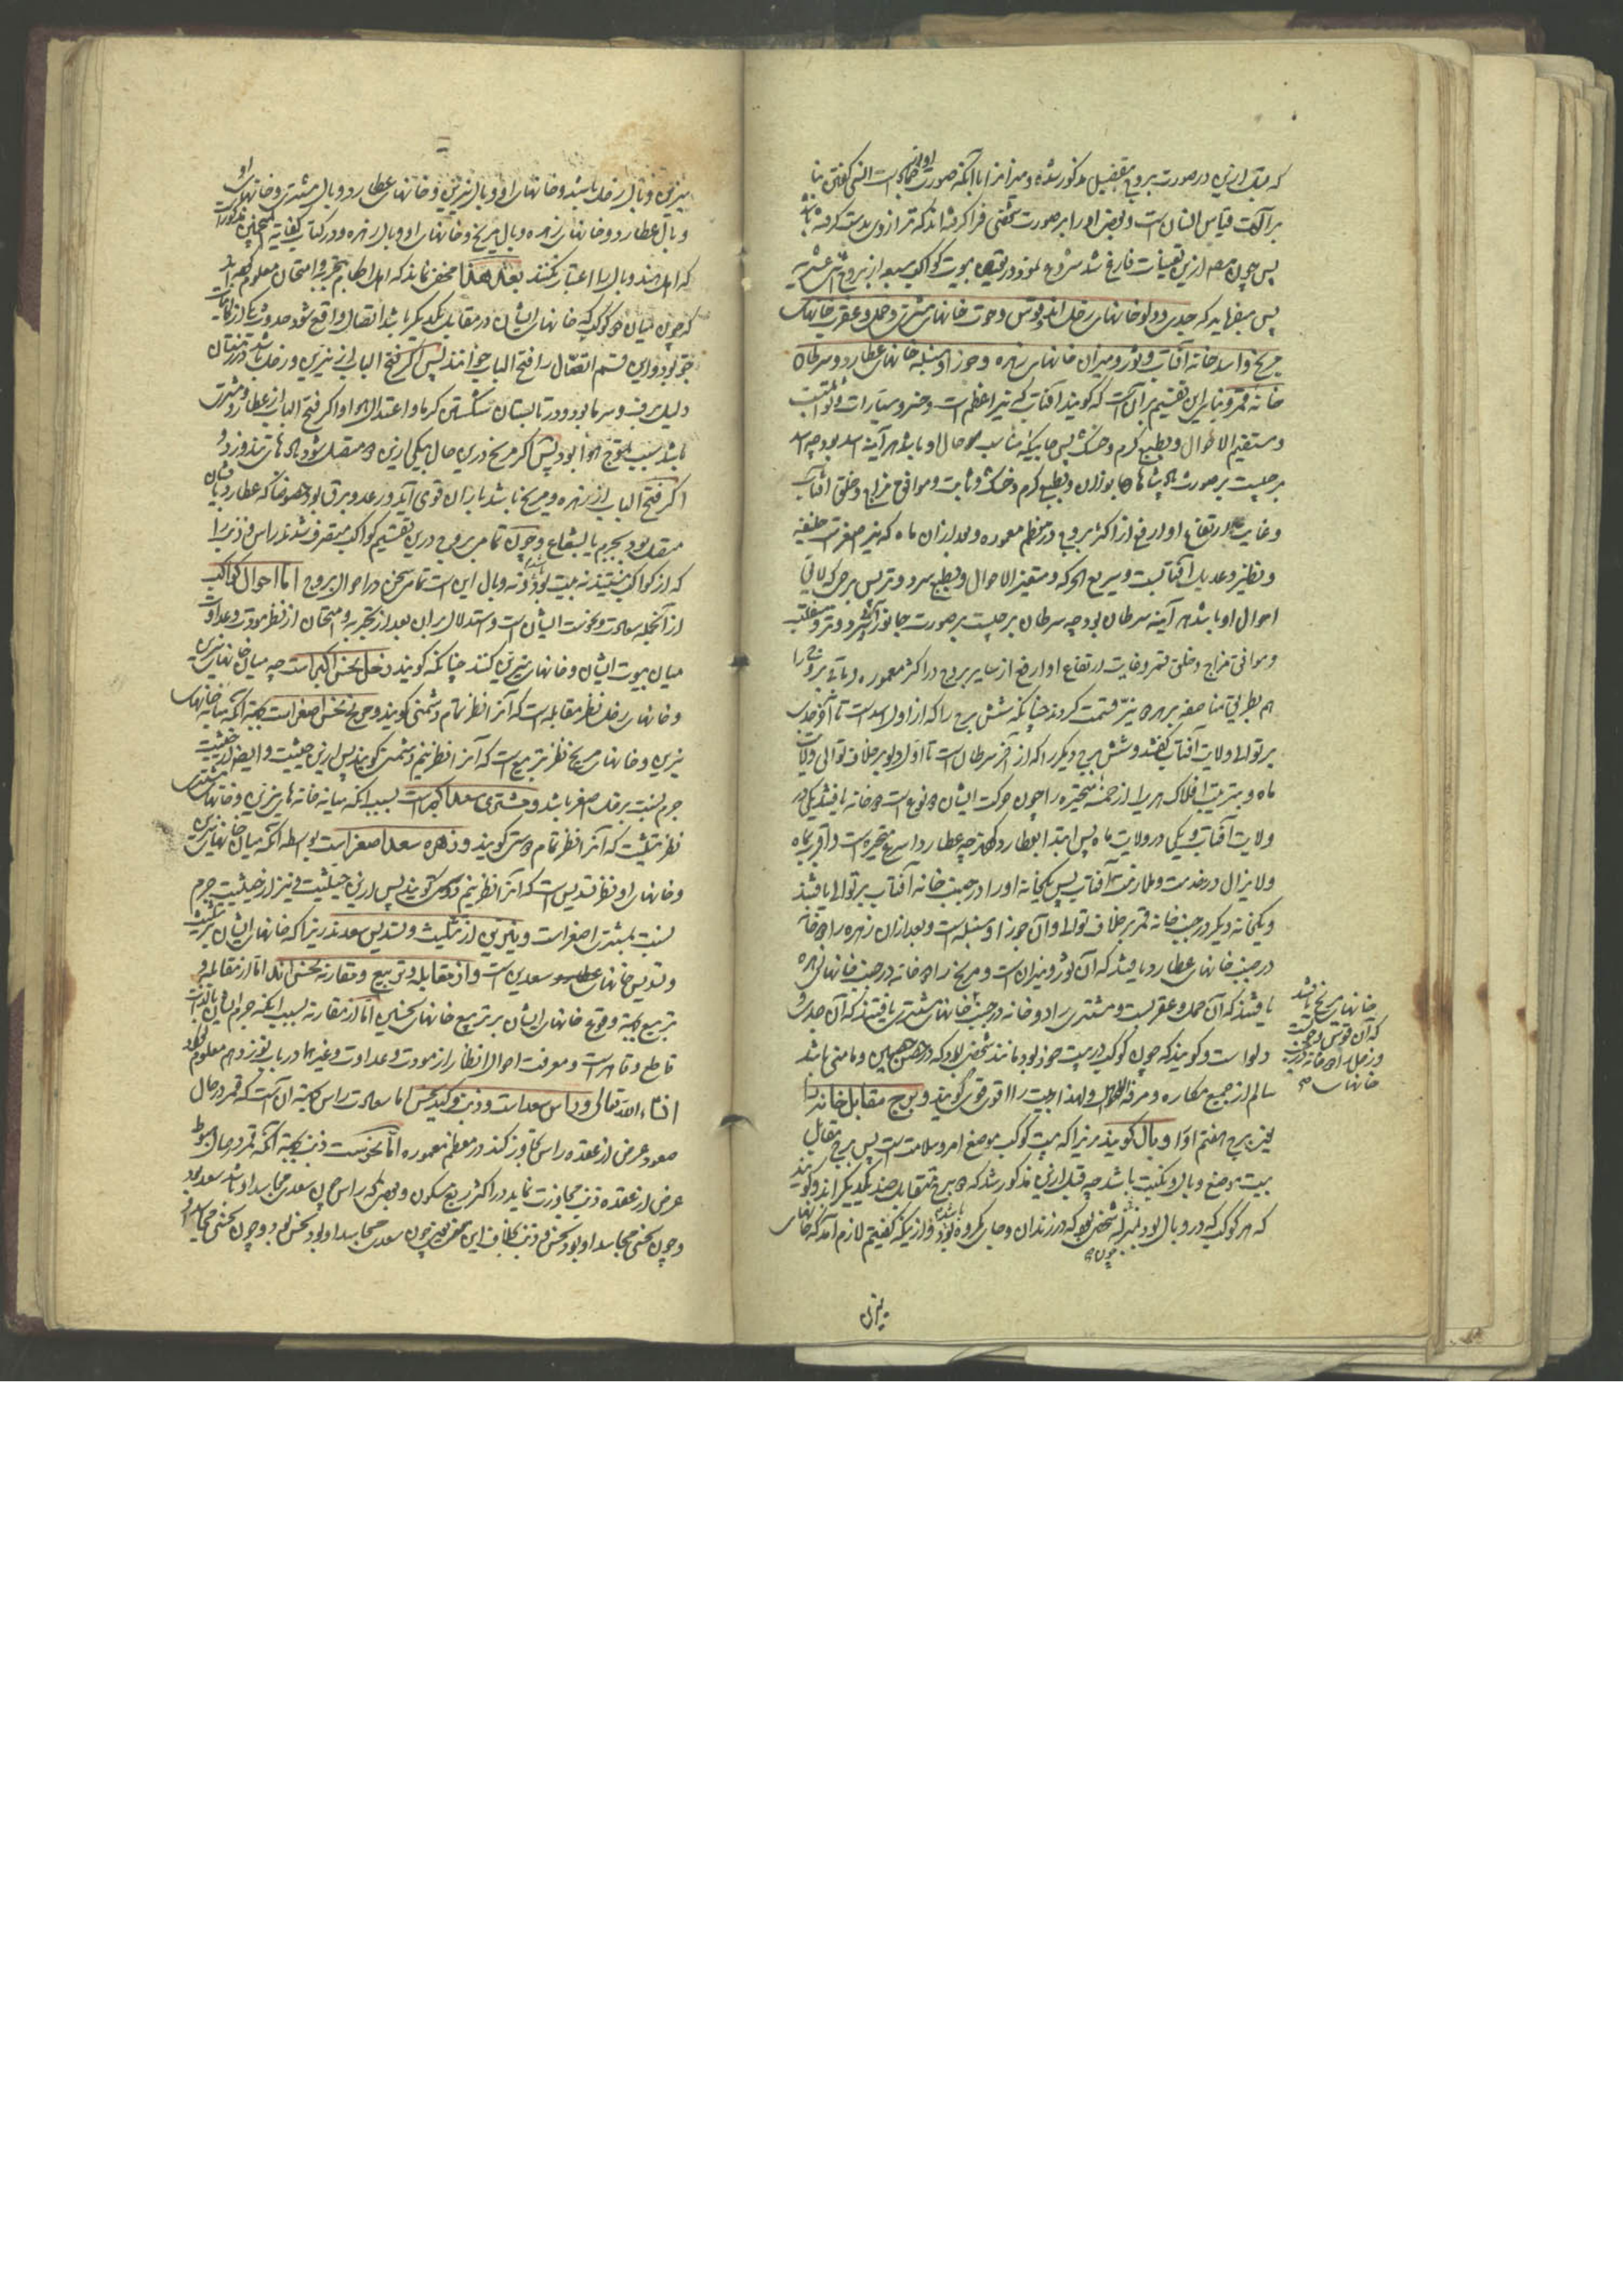 که قبل ازین در صورت بروج بتفصیل مذکور شده و میزانرا با آنکه صورت او از جمادات است انسی گفتن بنا
بر آنکه آلت قیاس انسان است و بعضی او را بر صورت شخصی فرا گرفته اند که ترازوی بدست گرفته باشد
پس چون مصنف ازین تعیینات فارغ شد شروع نمود در تعیین بیوت کواکب سبعه از بروج اثنی عشریه
پس میفرماید که جدی و دلو خانهای زحل اند و قوس و حوت خانهای مشتری و حمل و عقرب خانهای
مریخ و اسد خانه آفتاب و ثور و میزان خانهای زهره و جوزا و سنبله خانهای عطارد و سرطان
خانه قمر و بنای این تقسیم بر آن است که گویند آفتاب که نیر اعظم است و خسرو سیارات و ثوابت
و مستقیم الاحوال و بطبع گرم و خشک پس جائیکه مناسب حال او باشد هر آینه اسد بود چه اسد
برجیست بر صورت پادشاه جانوران و بطبع گرم و خشک و ثابت و موافق مزاج و خلق آفتاب
و غایت ارتفاع او ارفع از اکثر بروج در معظم معموره و بعد از آن ماه که نیر اصغر است خلیفه
و نظیر و عدیل آفتابست و سریع الحرکه و متغیر الاحوال و بطبع سرد و تر پس برجی که لایق
احوال او باشد هر آینه سرطان بود چه سرطان برجیست بر صورت جانور آبی و سرد و تر و منقلب
و موافق مزاج و خلق قمر و غایت ارتفاع او ارفع از سایر بروج در اکثر معموره و باقی بروج را
هم بطریق مناصفه بر هر دو نیر قسمت کردند چنانکه شش برج را که از اول اسد است تا آخر جدی
بر توالی ولایت آفتاب گفتند و شش برج دیگر را که از آخر سرطان است تا اول دلو بر خلاف توالی ولایت
ماه و بترتیب افلاک هر یرا از خمسه متحیره را چون حرکت ایشان دو نوع است دو خانه یافتند یکی در
ولایت آفتاب و یکی در ولایت ماه پس ابتدا بعطارد کردند چه عطارد اسرع متحیره است و اقرب بماه
و لایزال در خدمت و ملازمت آفتاب پس یکخانه او را در جنب خانه آفتاب بر توالی یافتند
و یکخانه دیگر در جنب خانه قمر بر خلاف توالی و آن جوزا و سنبله است و بعد از آن زهره را دو خانه
در جنب خانهای عطارد یافتند که آن ثور و میزان است و مریخ را دو خانه در جنب خانهای زهره
یافتند که آن حمل و عقربست و مشتری را دو خانه در جنب خانهای مشتری یافتند که آن جدی و
دلو است و گویند که چون کوکب در بیت خود بود مانند شخصی بود که در حصن حصین و مامنی باشد
سالم از جمیع مکاره و مرفه الاحوال و لهذا بیت را اقوی قوی گویند و برج مقابل خانه را
یعنی برج هفتم او را وبال گویند زیرا که بیت کوکب موضع امن و سلامت است پس برج مقابل
بیت موضع وبال و نکبت باشد چه قبل ازین مذکور شد که دو برج متقابل ضد یکدیگر اند و گویند
که هر کوکب که در وبال بود بمنزله شخصی بود که در زندان و جای مکروه بود و از اینکه گفتیم لازم آمد که خانهای
خانهای مریخ یافتند
که آن قوس و حوت است
و زحل را دو خانه در جنب
خانهای
نیرین
نیرین وبال زحل باشد و خانهای او وبال نیرین و خانهای عطارد وبال مشتری و خانهای او
وبال عطارد و خانهای زهره وبال مریخ و خانهای او وبال زهره و در کتاب کفایة التنجیم مذکور است
که اهل هند وبال را اعتبار نکنند بعد هذا مخفی نماند که اهل احکام بتجربه و امتحان معلوم کرده اند
که چون میان دو کوکب که خانهای ایشان در مقابل یکدیگر باشد اتصال واقع شود حدوث یکی از کاینات
جو بود و این قسم اتصال را فتح الباب خوانند پس اگر فتح الباب از نیرین و زحل باشد در زمستان
دلیل برف و سرما بود و در تابستان شکستن گرما و اعتدال هوا و اگر فتح الباب از عطارد و مشتری
باشد سبب تموج هوا بود پس اگر مریخ درین حال بیکی ازین دو متصل شود بادهای تند وزد و
اگر فتح الباب از زهره و مریخ باشد باران قوی آید و رعد و برق بود خصوصا که عطارد بایشان
متصل بود بجرم یا بشعاع و چون تمامی بروج درین تقسیم کواکب متصرف شدند راس و ذنب را
که از کواکب نیستند نه بیت بود و نه وبال این است تمامی سخن در احوال بروج اما احوال کواکب
از آنجمله سعادت و نحوست ایشان است و استدلال بر ان بعد از تجربه و امتحان از نظر مودت و عداوت
میان بیوت ایشان و خانهای نیرین کنند چنانکه گویند زحل نحس اکبر است چه میان خانهای نیرین
و خانهای زحل نظر مقابله است که آنرا نظر تمام دشمنی گویند و مریخ نحس اصغر است بجهة آنکه میانه خانهای
نیرین و خانهای مریخ نظر تربیع است که آنرا نظر نیم دشمنی گویند پس ازین حیثیت و ایضا از حیثیت
جرم نسبت بزحل اصغر باشد و مشتری سعد اکبر است بسبب انکه میانه خانهای نیرین و خانهای مشتری
نظر تثلیث که آنرا نظر تمام دوستی گویند و زهره سعد اصغر است بواسطه آنکه میان خانهای نیرین
و خانهای او نظر تسدیس است که آنرا نظر نیم دوستی گویند پس ازین حیثیت و نیز از حیثیت جرم
نسبت بمشتری اصغر است و نیرین از تثلیث و تسدیس سعدند زیرا که خانهای ایشان بتثلیث
و تسدیس خانهای سعدین است و از مقابله و تربیع و مقارنه نحس اند اما از مقابله و
تربیع بجهة وقوع خانهای ایشان بر تربیع خانهای نحسین اما از مقارنه بسبب اینکه جرم ایشان بالذات
قاطع و قاهر است و معرفت احوال انظار از مودت و عداوت و غیرها در باب نوزدهم معلوم گردد
انشاء الله تعالی و راس سعد است و ذنب و کید نحس اما سعادت راس بجهة آن است که قمر در حال
صعود عرض از عقده راس تجاوز کند در معظم معموره اما نحوست ذنب بجهة آنکه قمر در حال هبوط
عرض از عقده ذنب مجاوزت نماید در اکثر ربع مسکون و بعضی گویند که راس چون سعدی مجاسد او باشد سعد بود
و چون نحسی مجاسد او بود نحس و ذنب بخلاف این یعنی چون سعدی مجاسد او بود نحس بود و چون نحسی مجاسد او